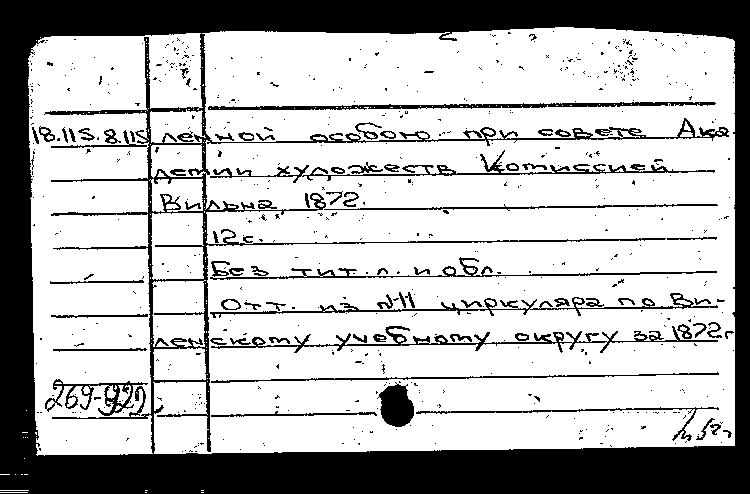 18.115.8.115 ленной особою при совете Ака-
демии художеств Комиссией
Вильна, 1872.
12с.
Без тит. л. и обл.
Отт. из №11 циркуляра по Ви-
ленскому учебному округу за 1872г
269-922